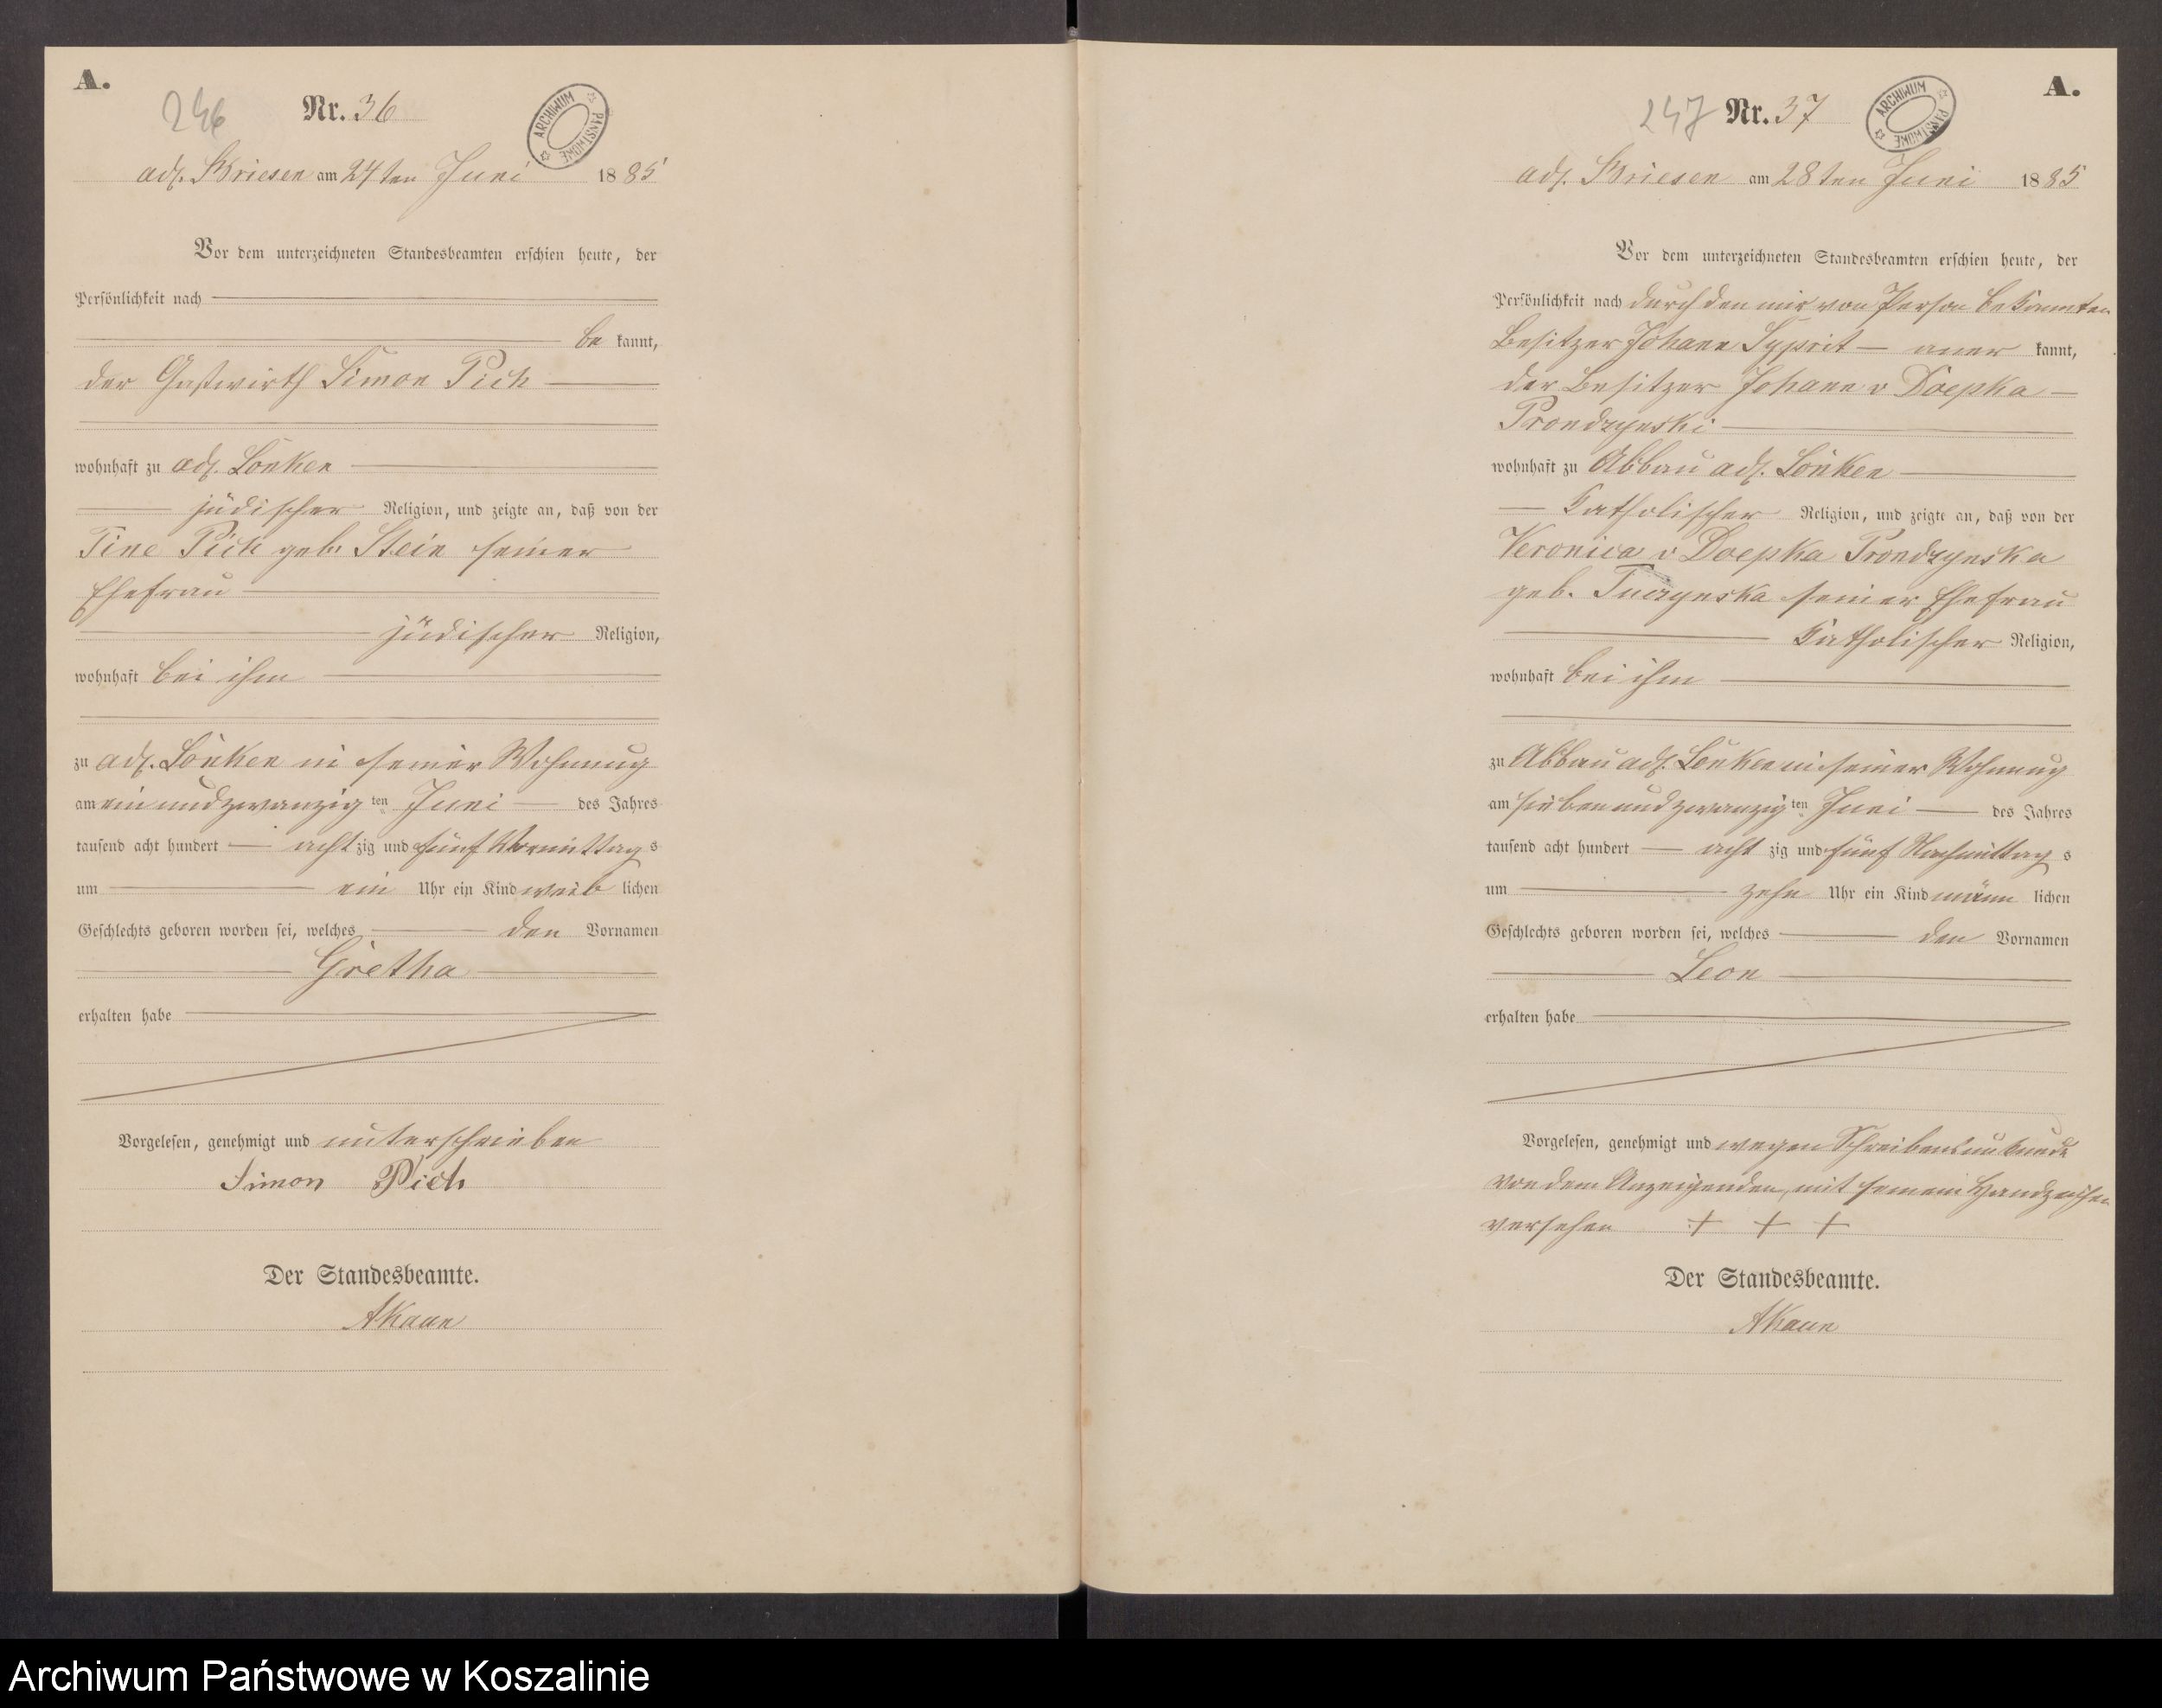 A.
246
Nr. 36
ARCHIWUM PAŃSTWOWE
adl. Briesen am 24ten Juni 1885
Vor dem unterzeichneten Standesbeamten erschien heute, der
Persönlichkeit nach
be kannt,
der Gastwirth Simon Pich
wohnhaft zu adl. Lonken
jüdischer Religion, und zeigte an, daß von der
Tine Pich geb. Stein seiner
Ehefrau
jüdischer Religion,
wohnhaft bei ihm
zu adl. Lonken in seiner Wohnung
am einundzwanzig ten Juni des Jahres
tausend acht hundert achtzig und fünf Vormittags
um ein Uhr ein Kind weiblichen
Geschlechts geboren worden sei, welches den Vornamen
Gretha
erhalten habe
Vorgelesen, genehmigt und unterschrieben
Simon Pich
Der Standesbeamte.
AKaun
A.
247
Nr. 37
ARCHIWUM PAŃSTWOWE
adl. Briesen am 28ten Juni 1885
Vor dem unterzeichneten Standesbeamten erschien heute, der
Persönlichkeit nach durch den mir von Person bekannten
Besitzer Johann Syprit aner kannt,
der Besitzer Johann v Doepka
Prondzynski
wohnhaft zu Abbau adl. Lonken
Katholischer Religion, und zeigte an, daß von der
Veronica v Doepka Prondzynska
geb. seiner Ehefrau
Katholischer Religion,
wohnhaft bei ihm
zu Abbau adl. Lonken in seiner Wohnung
am siebenundzwanzig ten Juni des Jahres
tausend acht hundert acht zig und fünf Nachmittags
um zehn Uhr ein Kind männ lichen
Geschlechts geboren worden sei, welches den Vornamen
Leon
erhalten habe
Vorgelesen, genehmigt und wegen Schreibensunkunde
von dem Anzeigenden mit seinem Handzeichen
versehen + + +
Der Standesbeamte.
AKaun
Archiwum Państwowe w Koszalinie